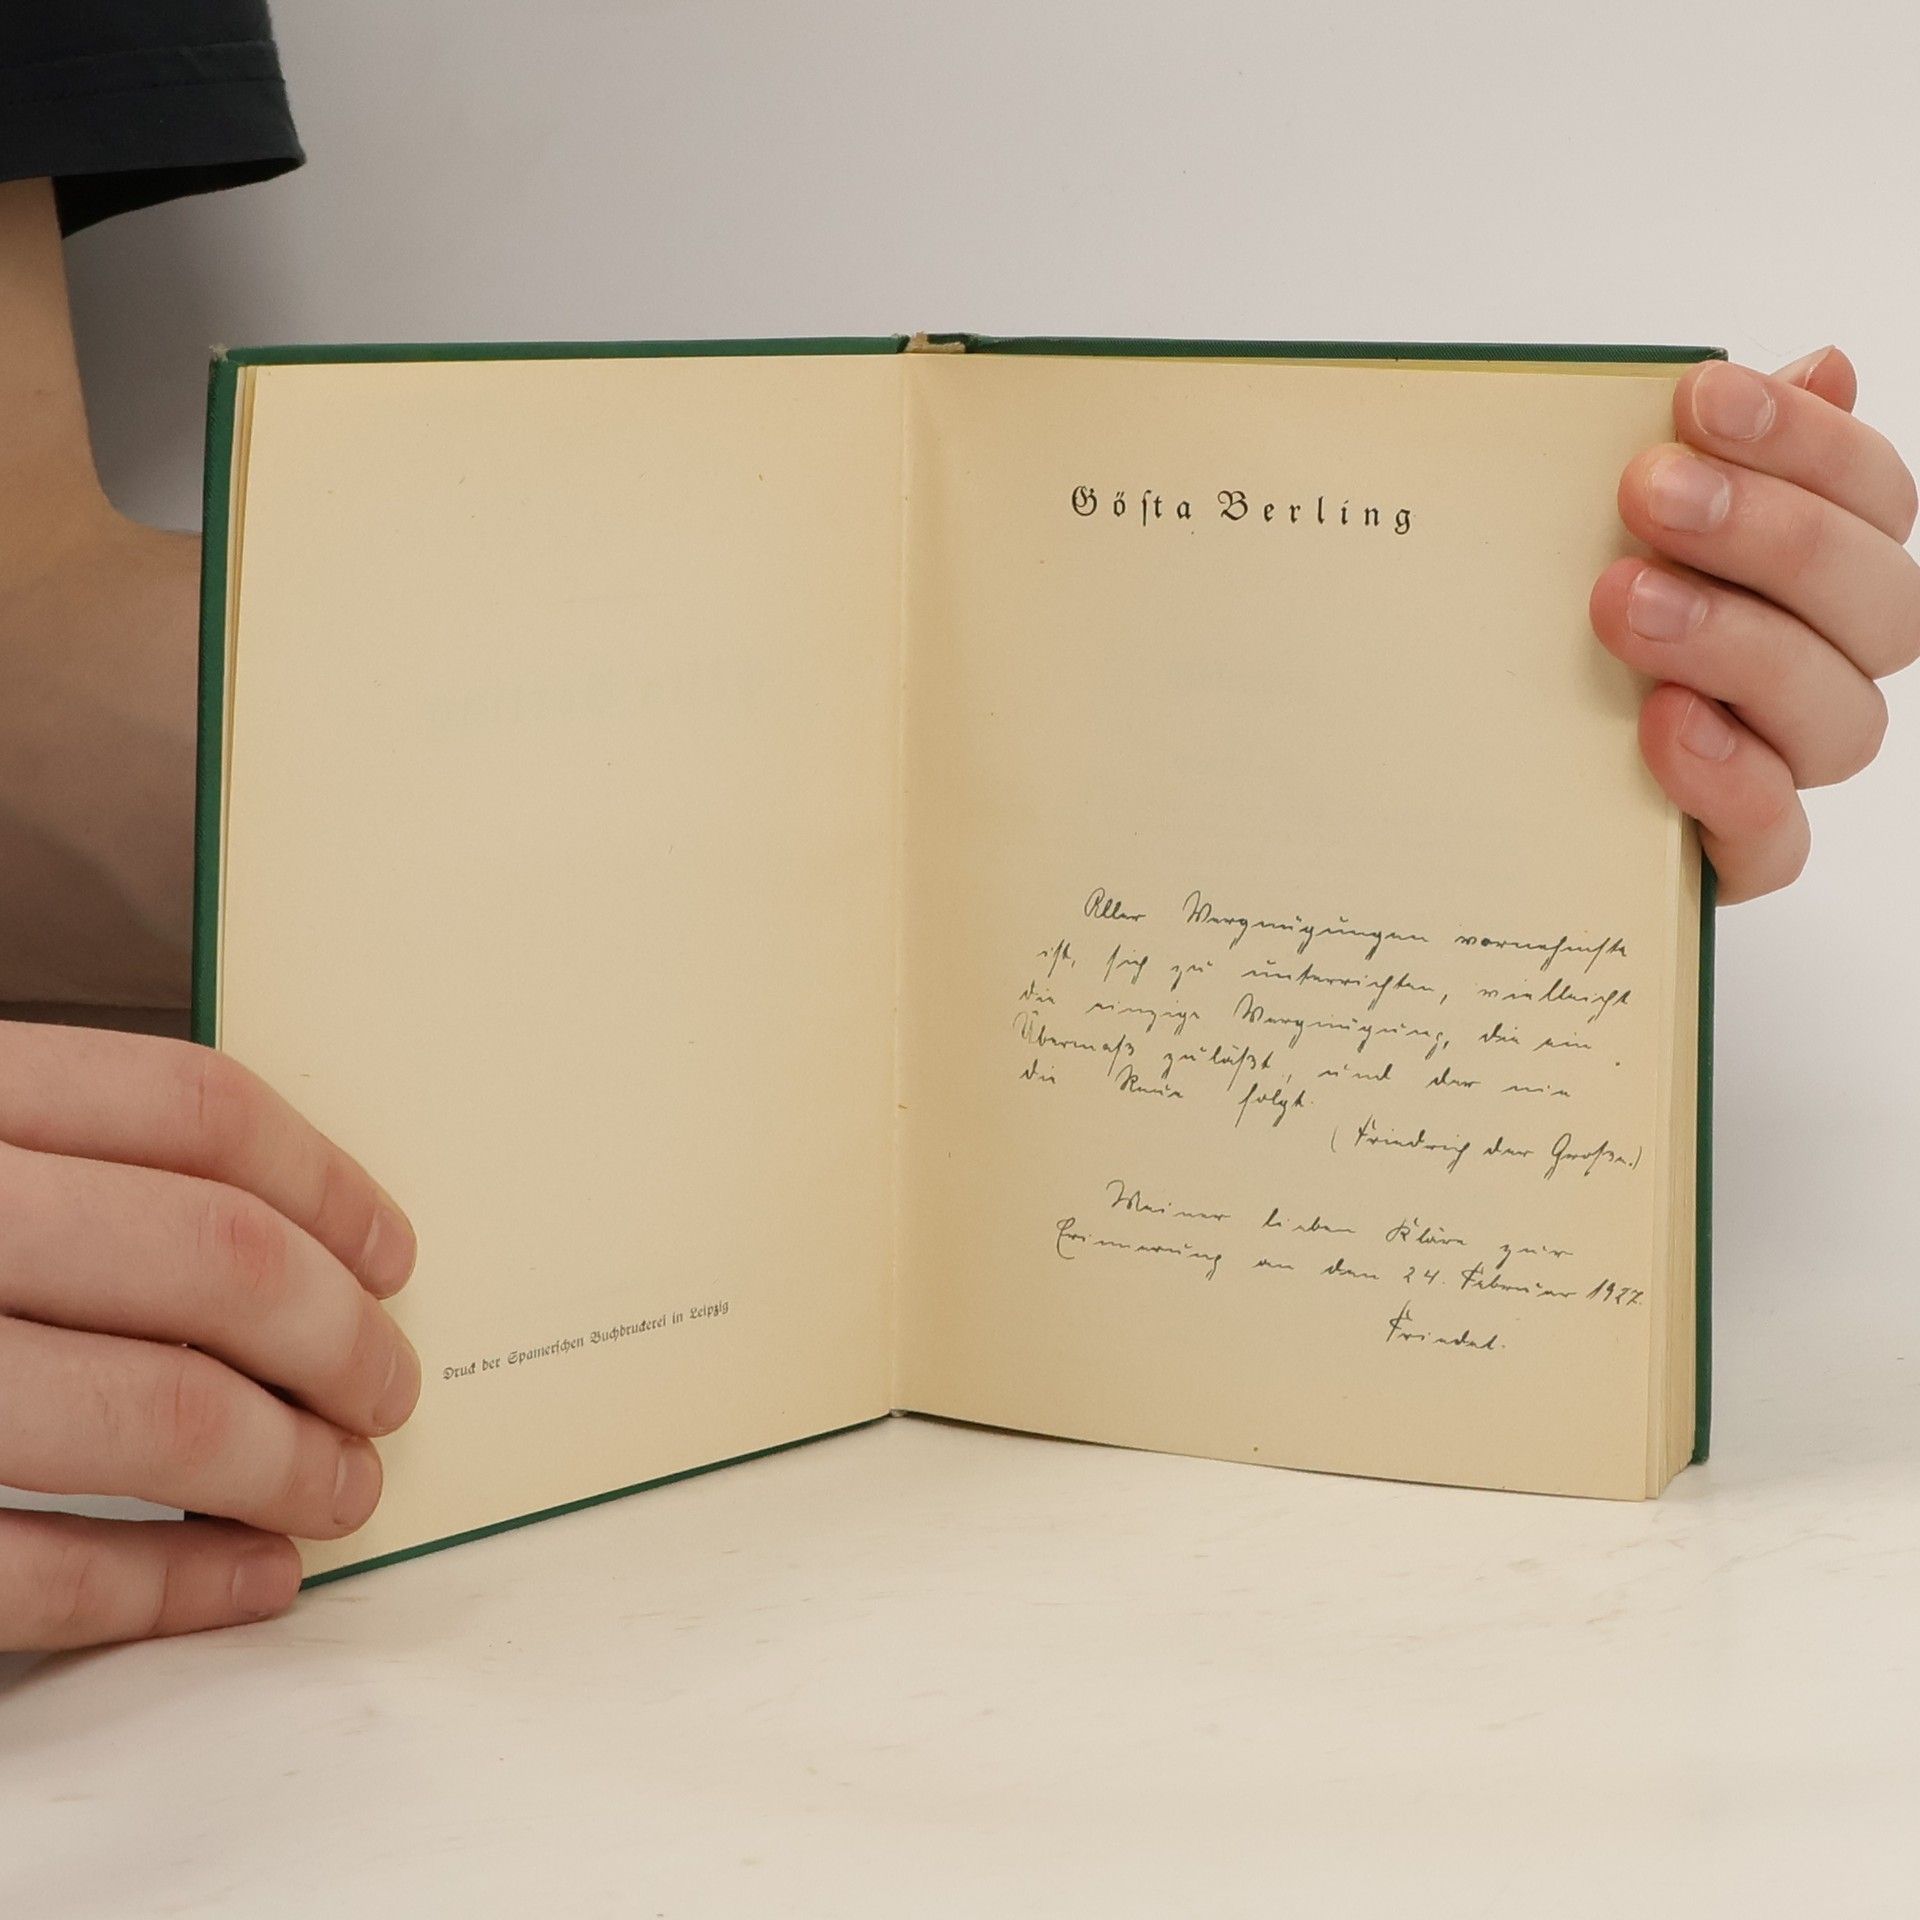 Druck der Spamerschen Buchdruckerei in Leipzig
Göſta Berling
Aller Vergnügungen vornehmste
ist, sich zu unterrichten, vielleicht
die einzige Vergnügung, die ein
Übermaß zuläßt, und der nie
die Reue folgt.
(Friedrich der Große.)
Meiner lieben Kläre zur
Erinnerung an den 24. Februar 1927.
Friedel.